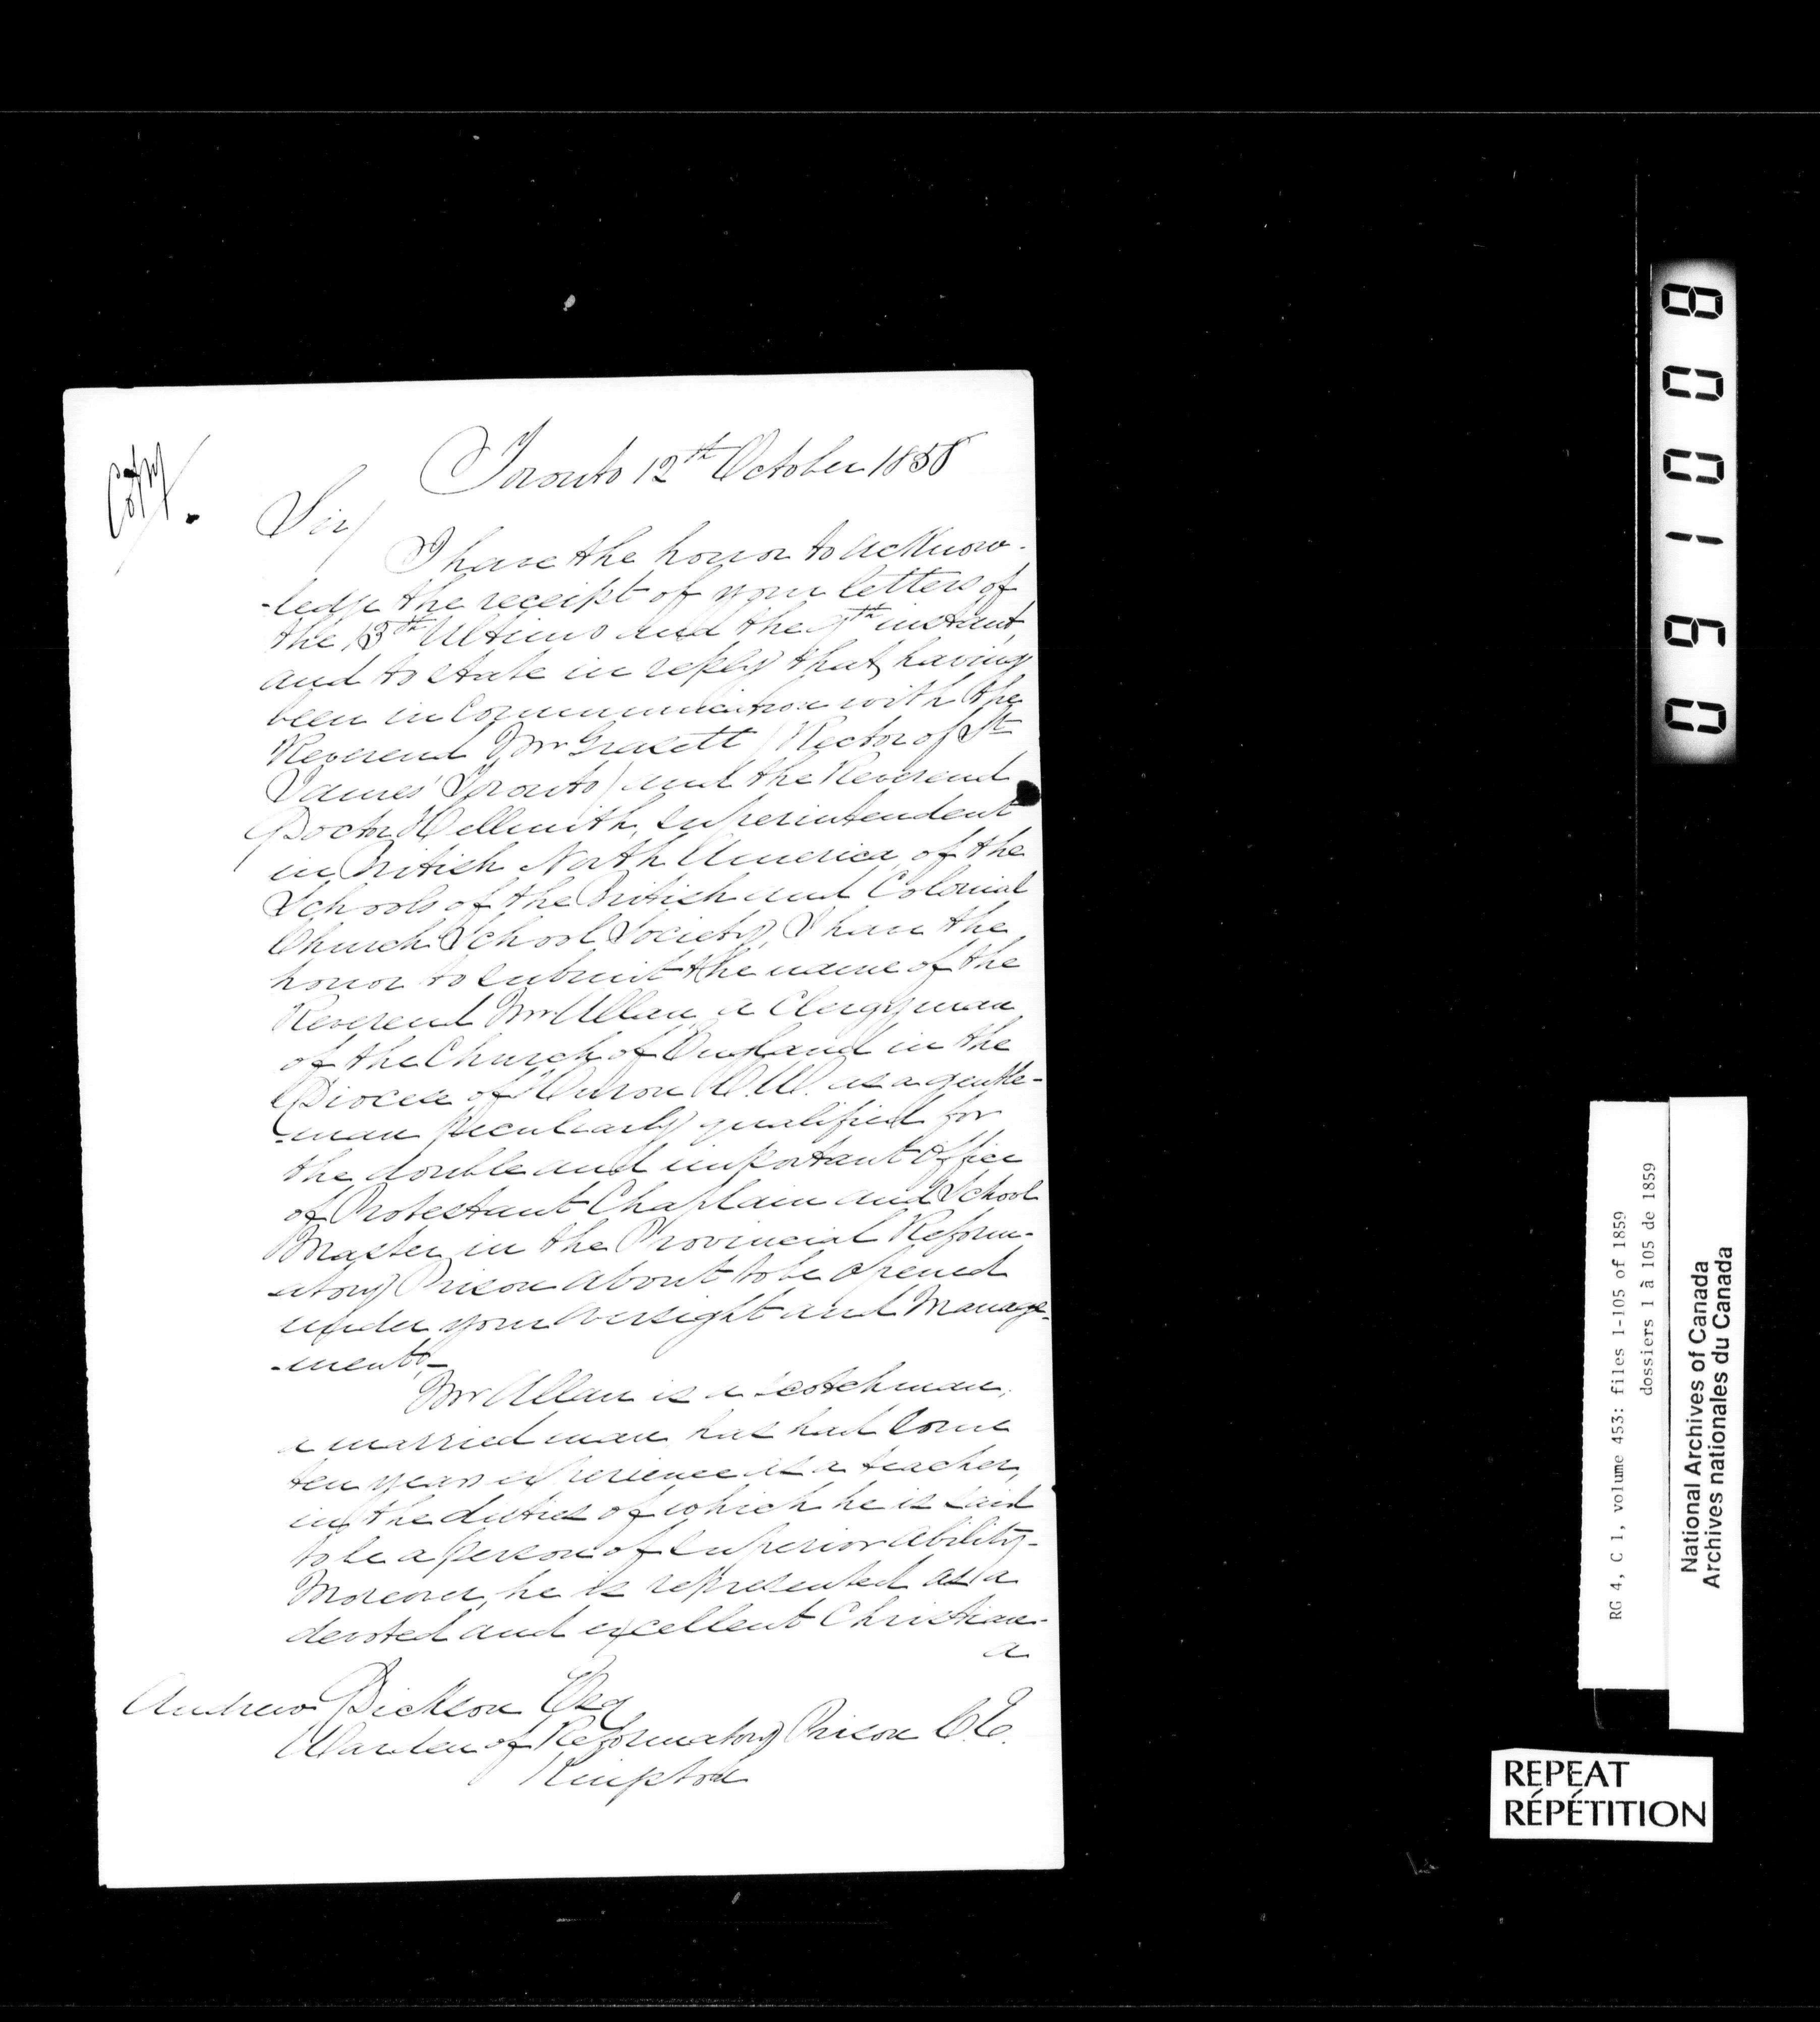 Copy.
Toronto 12th October 1858
Sir/
I have the honor to acknow-
-ledge the receipt of your letters of
the 13th Ultimo and the 9th instant,
and to state in reply that, having
been in Communication with the
Reverend Mr Grasett (Rector of St
James' Toronto) and the Reverend
Doctor Hellmuth, Superintendent
in British North America, of the
Schools of the British and Colonial
Church School Society, I have the
honor to submit the name of the
Reverend Mr Allan, a Clergyman
of the Church of England in the
Diocese of Huron C.W. as a gentle-
-man peculiarly qualified for
the double and important Office
of Protestant Chaplain and School
Master in the Provincial Reform-
-atory Prison about to be opened
under your oversight and Manage-
-ment.-
Mr Allan is a Scotchman,
a married man has had some
ten years experience as a teacher,
in the duties of which he is said
to be a person of superior ability-
Moreover, he is represented as a
devoted and excellent Christian-
a
Andrew Dickson Esq
Warden of Reformatory Prison C.E.
Kingston
091008
RG 4, C 1, volume 453: files 1-105 of 1859
dossiers 1 à 105 de 1859
National Archives of Canada
Archives nationales du Canada
REPEAT
RÉPÉTITION